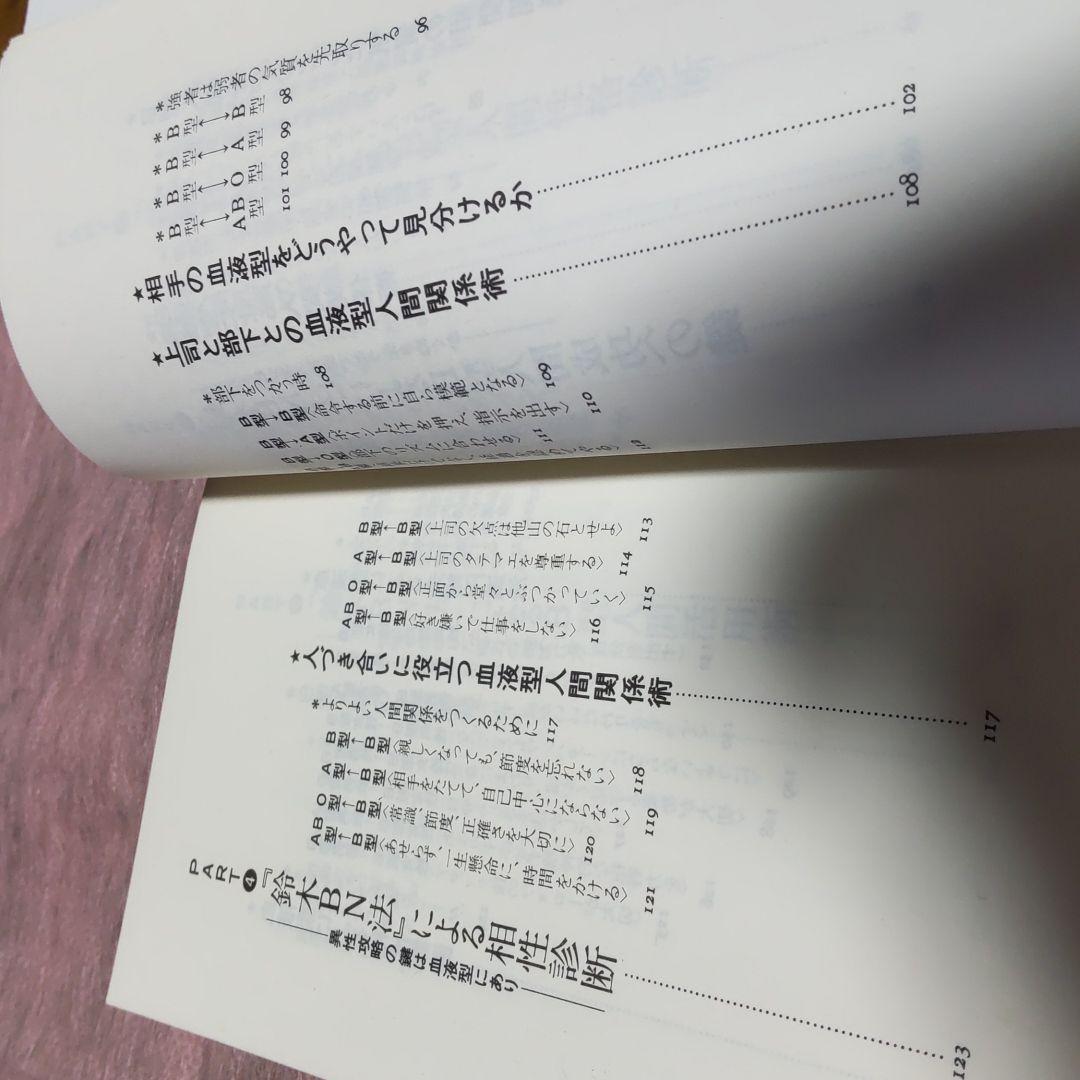 *強者は弱者の気質を先取りする 96
*B型←→B型 98
*B型←→A型 99
*B型←→O型 100
*B型←→AB型 101
★相手の血液型をどうやって見分けるか…………102
★上司と部下との血液型人間関係術…………108
*部下をつかう時 108
B型→B型〈命令する前に自ら模範となる〉 109
B型→A型〈ポイントだけを押え、指示を出す〉 110
B型→O型〈部下のリズムに合わせる〉 111
112
B型←B型〈上司の欠点は他山の石とせよ〉 113
A型←B型〈上司のタテマエを尊重する〉 114
O型←B型〈正面から堂々とぶつかっていく〉 115
AB型←B型〈好き嫌いで仕事をしない〉 116
★人づき合いに役立つ血液型人間関係術…………117
*よりよい人間関係をつくるために 117
B型←B型〈親しくなっても、節度を忘れない〉 118
A型←B型〈相手をたてて、自己中心にならない〉 119
O型←B型〈常識、節度、正確さを大切に〉 120
AB型←B型〈あせらず、一生懸命に、時間をかける〉 121
PART❹『鈴木BN法』による相性診断…………123
異性攻略の鍵は血液型にあり